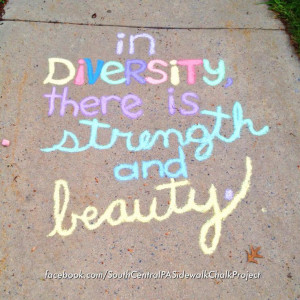 in
DiVERSiTY,
there is
strength
and
beauty.
facebook.com/SouthCentralPASidewalkChalkProject